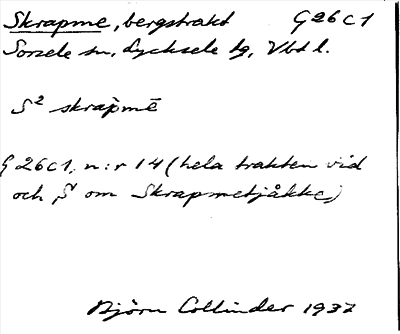 Skrapme, bergstrakt G 26 C 1
Sorsele sn, Lycksele tg, Vbtl.
S² skràpmē
G 26 C 1, n:r 14 (hela trakten vid
och S om Skrapmetjåkke)
Björn Collinder 1937